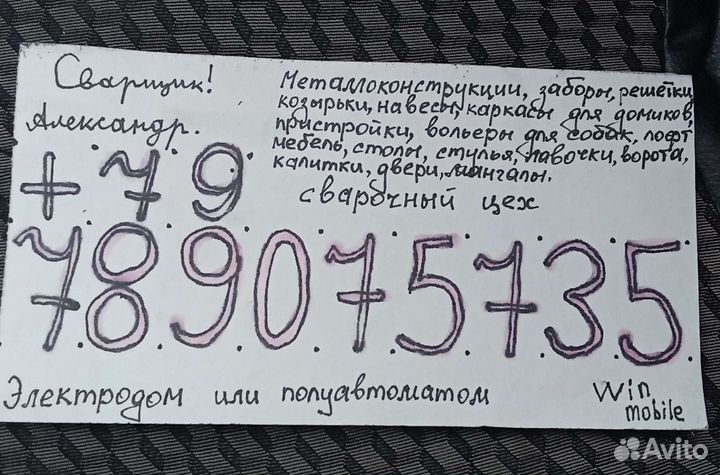 Сварщик!
Александр.
Металлоконструкции, заборы, решётки,
козырьки, навесы, каркасы для домиков,
пристройки, вольеры для собак, лофт
мебель, столы, стулья, лавочки, ворота,
калитки, двери, мангалы.
сварочный цех
+79
789075735
Электродом или полуавтоматом
Win
mobile
Avito